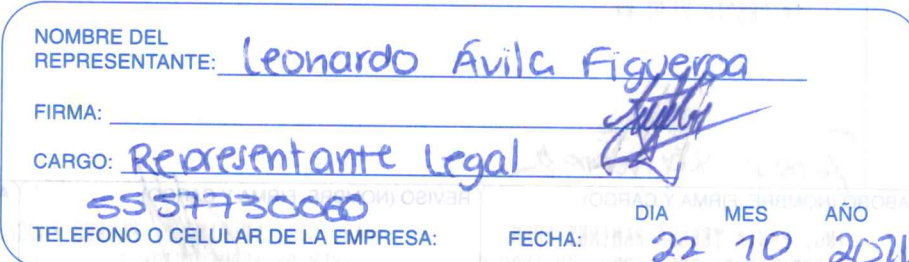 NOMBRE DEL
REPRESENTANTE: Leonardo Ávila Figueroa
FIRMA:
CARGO: Representante Legal
5537730060
TELEFONO O CELULAR DE LA EMPRESA:
FECHA: DIA MES AÑO
22 10 2021